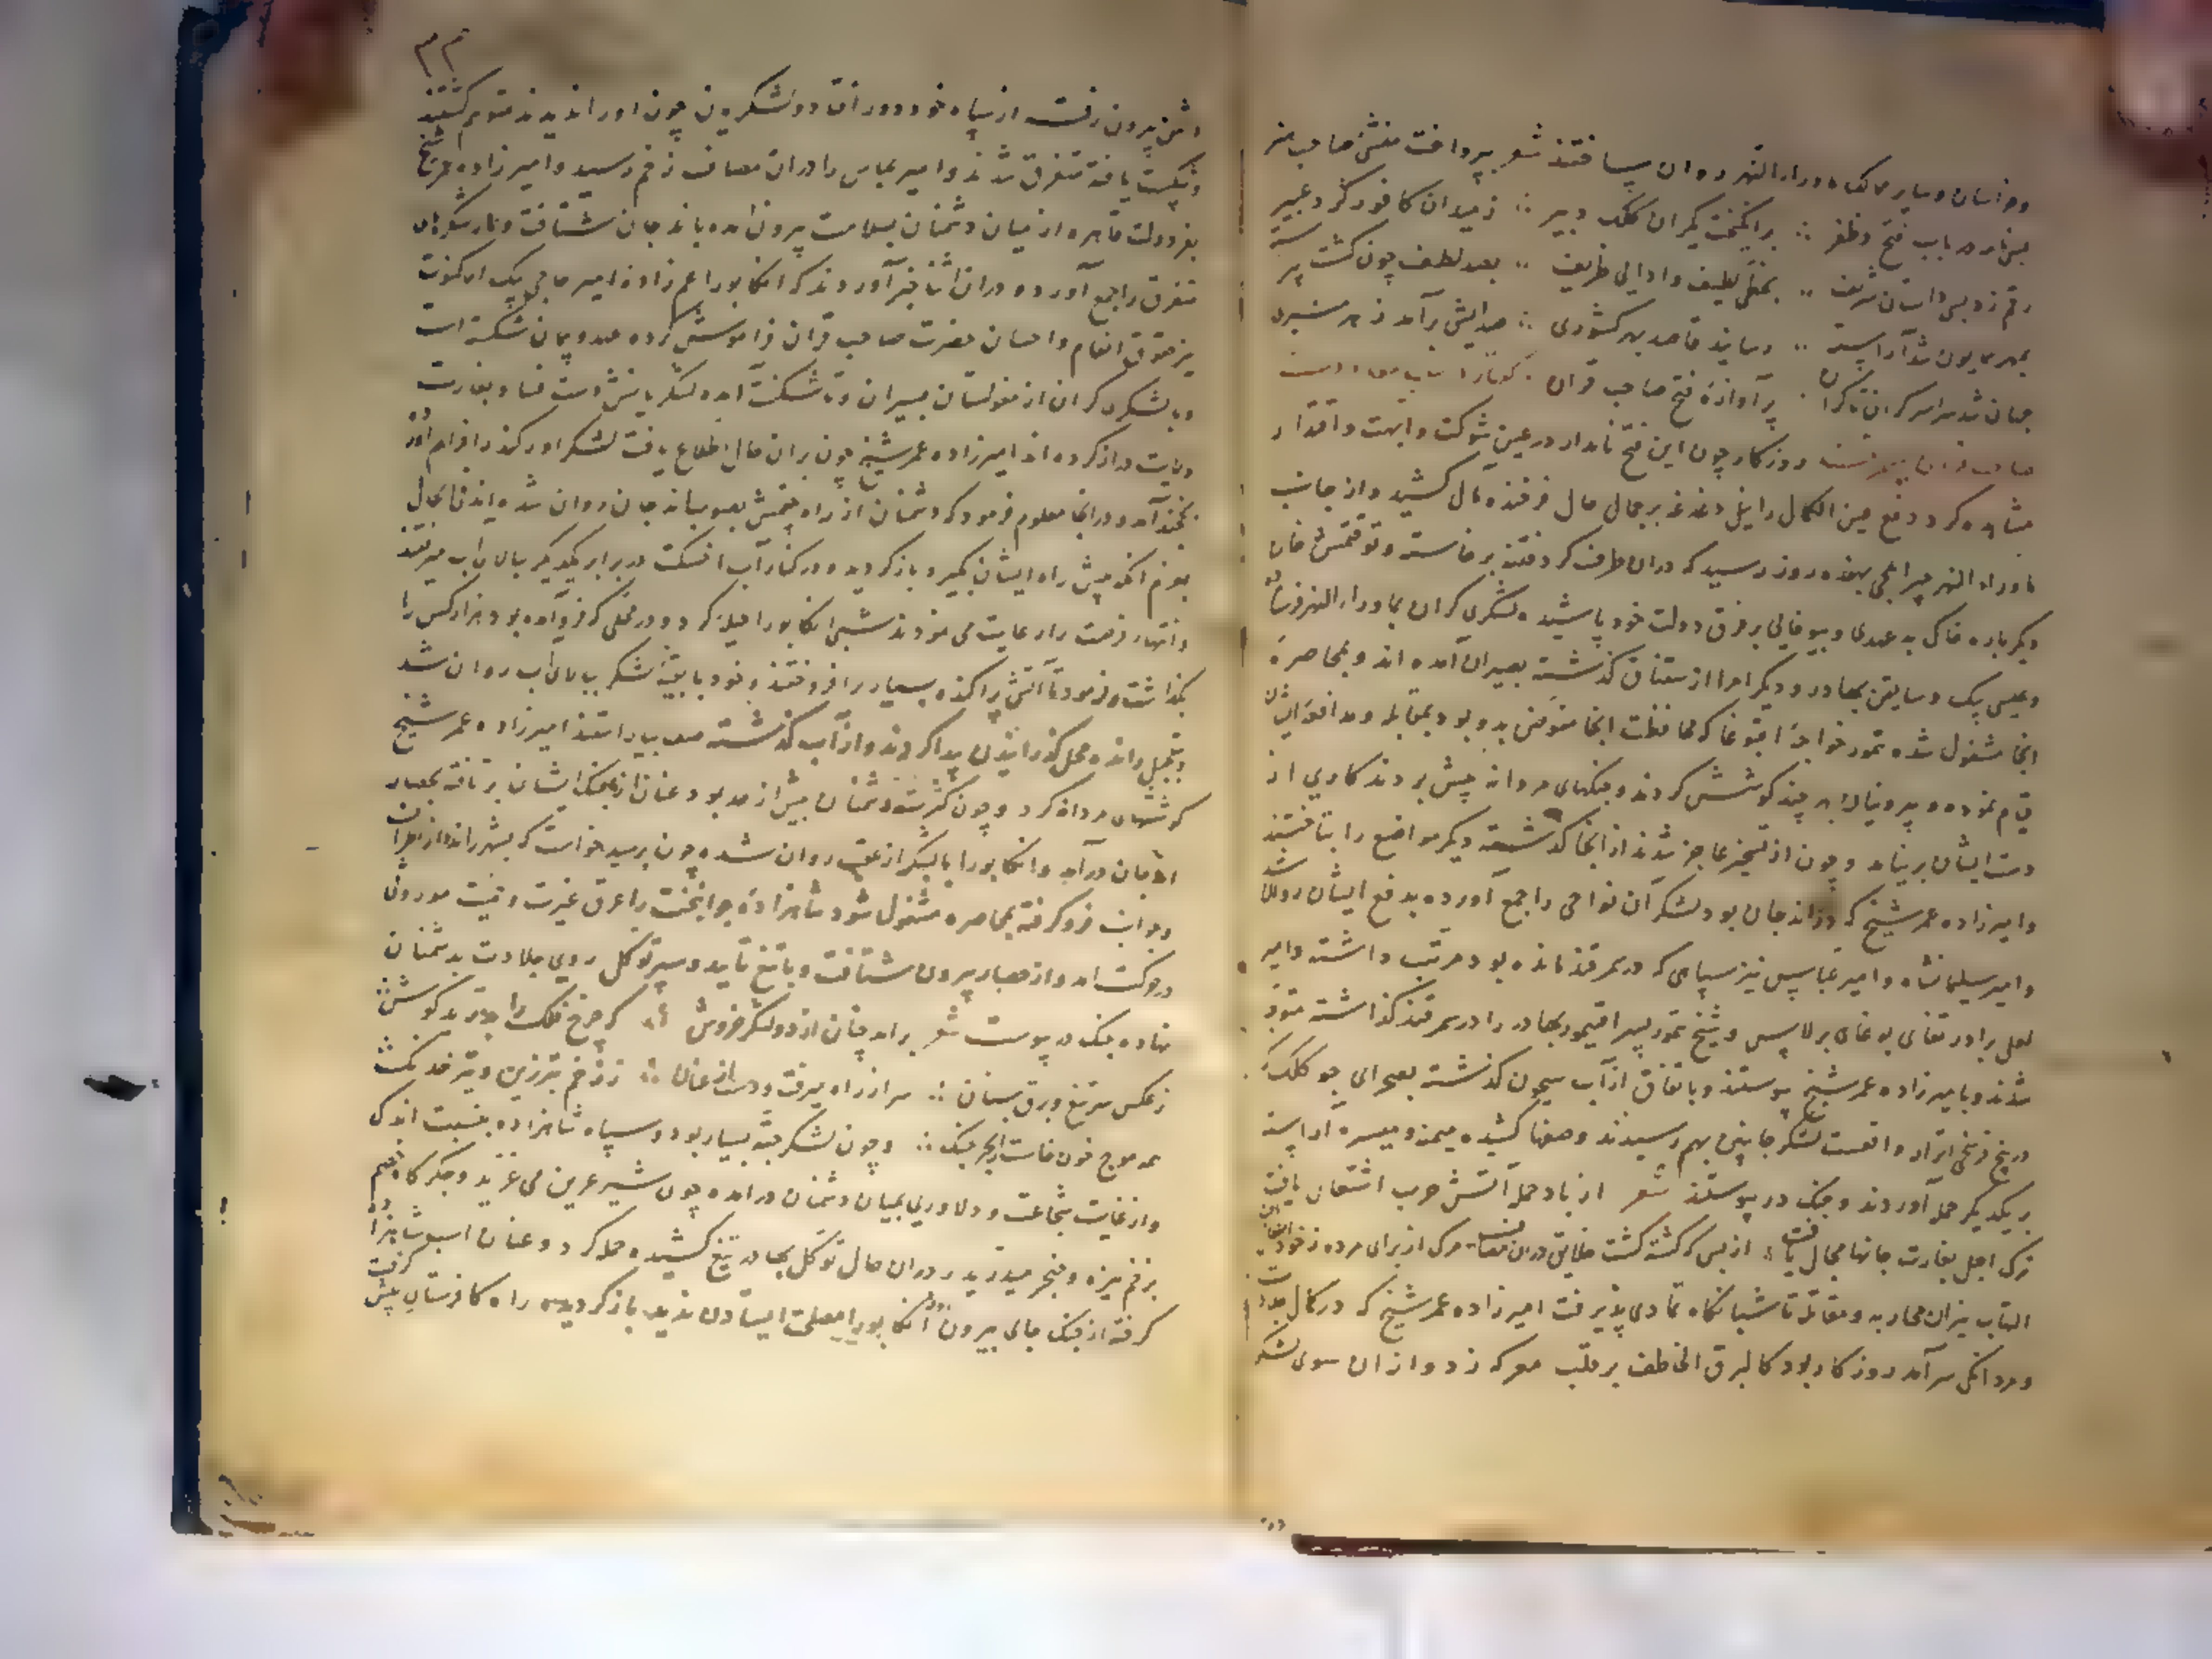 وخراسان وسایر ممالک ماوراء النهر روان ساختند شعر بپرداخت منشی صاحب هنر
بسی نامه در باب فتح وظفر ∴ برانگیخت یکران کلک دبیر ∴ زمیدان کافور گرد عبیر
رقم زد بسی داستان شریف ∴ بخطی لطیف وادایی ظریف ∴ بصد لطف چون گشت پیراسته
بمهر همایون شد آراسته ∴ رسانید قاصد بهر کشوری ∴ صدایش برآمد ز هر منبری
جهان شد سراسر کران تا کران ∴ پر آوازه فتح صاحب قران
صاحب قران روزگار چون این فتح نامدار در عین شوکت وابهت واقتدار
مشاهده کرد دفع عین الکمال را نیل دغدغه بر جمال حال فرخنده مآل کشید واز جانب
ماوراء النهر ایلچی بهفده روز رسید که دران طرف گرد فتنه برخاسته وتوقتمش خان
دیگر باره خاک بد عهدی وبیوفایی بر فرق دولت خود پاشیده لشکری گران بماوراء النهر فرستاده
وعیسی بیک وساتقین بهادر ودیگر امرا از سغناق گذشته بصبران آمده اند وبمحاصره
انجا مشغول شده تمور خواجه اقبوغا که محافظت انجا مفوض بدو بود بمقابله ومدافعه ایشان
قیام نموده وبیرونیان هر چند کوشش کردند وجنگهای مردانه پیش بردند کاری از
دست ایشان بر نیامد وچون از تسخیر عاجز شدند از انجا گذشته دیگر مواضع را بتاختند
وامیرزاده عمر شیخ که در اندجان بود لشکر آن نواحی را جمع آورده بدفع ایشان روان شد
وامیر سلیمانشاه وامیر عباس نیز سپاهی که در سمرقند مانده بود مرتب داشته وامیر
لعل برادر تغای بوغای برلاس وشیخ تمور پسر اقتیمور بهادر را در سمرقند گذاشته متوجه
شدند وبامیرزاده عمر شیخ پیوستند وباتفاق از آب سیحون گذشته بصحرای جوکلک
در پنج فرسخی اترار واقعست لشکر جانبین بهم رسیدند وصفها کشیده میمنه ومیسره آراسته
بر یکدیگر حمله آوردند وجنگ در پیوستند شعر از باد حمله آتش حرب اشتعال یافت
ترک اجل بغارت جانها مجال یافت ∴ از بس که کشته گشت خلایق دران مصاف مرگ از برای مرده
التهاب نیران محاربه ومقاتله تا شبانگاه تمادی پذیرفت امیرزاده عمر شیخ که در کمال جلادت
ومردانگی سرآمد روزگار بود کالبرق الخاطف بر قلب معرکه زد واز ان سوی لشکر
۳۳
دشمن بیرون رفت از سپاه خود دور افتاد ولشکریان چون اورا ندیدند متوهم گشتند
وشکست یافته متفرق شدند وامیر عباس را دران مصاف زخم رسید وامیرزاده عمر شیخ
بفر دولت قاهره از میان دشمنان بسلامت بیرون آمده باندجان شتافت ولشکرهای
متفرق را جمع آورد ودران اثنا خبر آوردند که انکا تورا عم زاده امیر حاجی بیک ارکنوت
نیز حقوق انعام واحسان حضرت صاحب قران فراموش کرده عهد وپیمان شکسته است
وبا لشکری گران از مغولستان بسیران وتاشکنت آمده لشکریانش دست فساد وبغارت
ولایت دراز کرده اند امیرزاده عمر شیخ چون بران حال اطلاع یافت لشکر اورکند را فراهم آورده
بخجند آمد ودر انجا معلوم فرمود که دشمنان از راه بصوب اندجان روان شده اند فی الحال
بعزم انکه پیش راه ایشان بگیرد بازگردید ودر کنار آب اخسکت در برابر یکدیگر بالای آب میرفتند
وانتهاز فرصت را رعایت می نمودند شبی انکا تورا حیله کرد ودر محلی که فرود آمده بود هزار کس را
بگذاشت وفرمود تا آتش پراکنده بسیار برافروختند وخود با بقیه لشکر ببالای آب روان شد
وبتعجیل رانده محل گذرانیدن پیدا کردند واز آب گذشته صف بیاراستند امیرزاده عمر شیخ
کوششهای مردانه کرد وچون کثرت دشمنان بیش از حد بود عنان از جنگ ایشان بر تافته بحصار
اندجان درآمد وانکا تورا با لشکر از عقب روان شده چون برسید خواست که بشهر راند از اطراف
وجوانب فروگرفته بمحاصره مشغول شود شاهزاده جوانبخت را عرق غیرت وحمیت موروثی
در حرکت آمد واز حصار بیرون شتافت وبا تیغ تایید وسپر توکل روی جلادت بدشمنان
نهاده جنگ در پیوست شعر برآمد چنان از دو لشکر خروش ∴ که چرخ فلک را بدرید گوش
ز عکس سر تیغ وبرق سنان ∴ سر از راه میرفت ودست از عنان ∴ ز زخم تبرزین وتیر خدنگ
همه موج خون خاست از بحر جنگ ∴ وچون لشکر جته بسیار بود وسپاه شاهزاده بنسبت اندک
واز غایت شجاعت ودلاوری بمیان دشمنان درآمده چون شیر عرین می غرید وجگرگاه خصم
بزخم نیزه وخنجر میدرید ودران حال توکل بهادر تیغ کشیده حمله کرد وعنان اسب شاهزاده
گرفته از جنگ جای بیرون آورد انکا تورا مصلحت ایستادن ندید بازگردیده راه کافرستان پیش گرفت